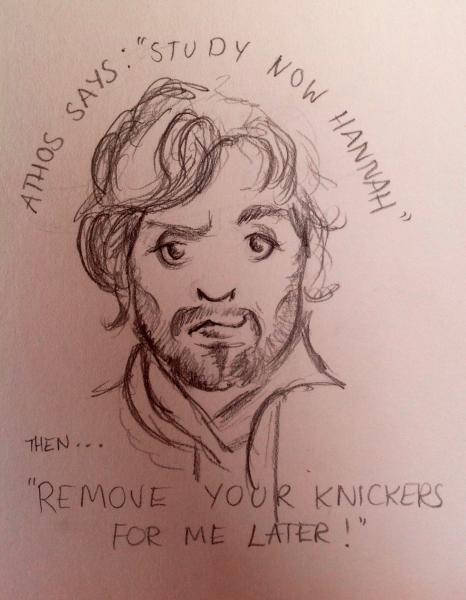 ATHOS SAYS: "STUDY NOW HANNAH"
THEN...
"REMOVE YOUR KNICKERS
FOR ME LATER!"